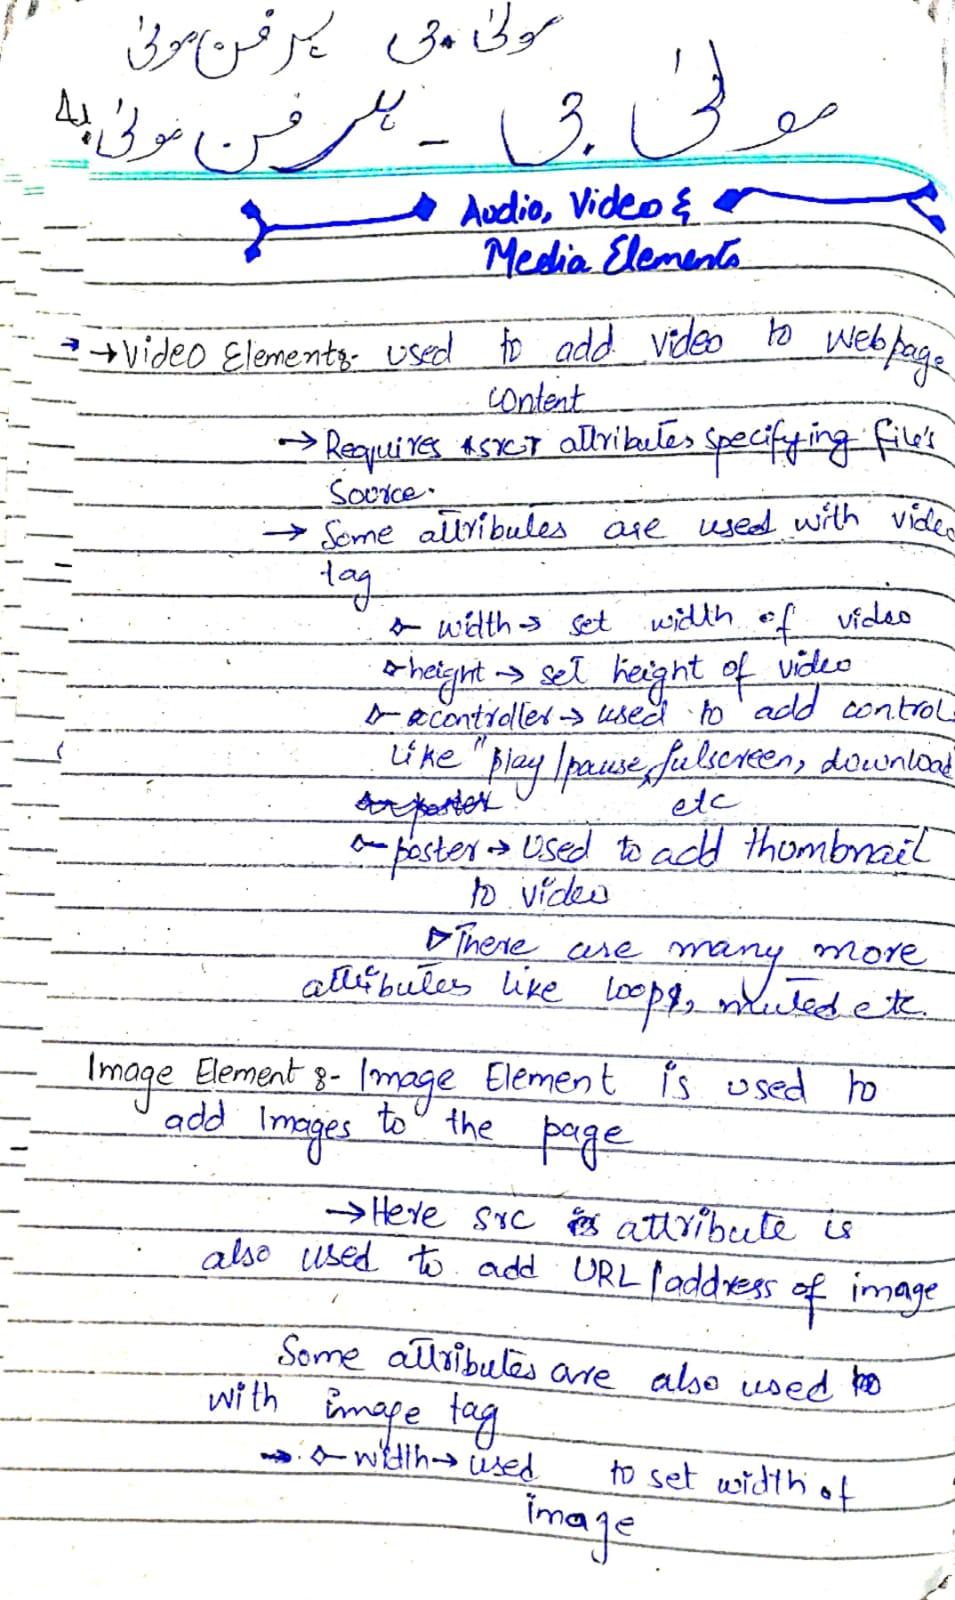 مولیٰ جی ہر فن مولیٰ
مولیٰ جی - ہر فن مولیٰ
Audio, Video &
Media Elements
→ → Video Elements:- used to add video to webpage
content
→ Requires *src* attributes specifying file's
Source.
→ Some attributes are used with video
tag
width → set width of video
height → set height of video
controller → used to add control
Like "play/pause, fulscreen, download
poster etc
poster → Used to add thumbnail
to video
▷ There are many more
attributes like loops, muted etc.
Image Element :- Image Element is used to
add Images to the page
→ Here src is attribute is
also used to add URL/address of image
Some attributes are also used to
with image tag
→ width → used to set width of
image